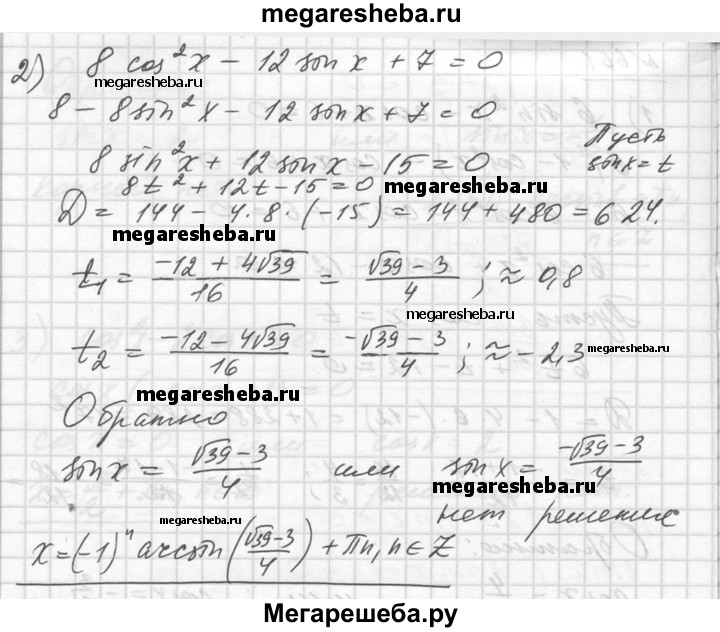 megaresheba.ru
2) 8 cos²x − 12 sin x + 7 = 0
megaresheba.ru
8 − 8 sin²x − 12 sin x + 7 = 0
8 sin²x + 12 sin x − 15 = 0 Пусть sin x = t
8t² + 12t − 15 = 0 megaresheba.ru
D = 144 − 4·8·(−15) = 144 + 480 = 624.
megaresheba.ru
t₁ = (−12 + 4√39)/16 = (√39 − 3)/4 ; ≈ 0,8
megaresheba.ru
t₂ = (−12 − 4√39)/16 = (−√39 − 3)/4 ; ≈ −2,3 megaresheba.ru
megaresheba.ru
Обратно
sin x = (√39 − 3)/4 или sin x = (−√39 − 3)/4
megaresheba.ru
megaresheba.ru нет решения
x = (−1)ⁿ arcsin((√39 − 3)/4) + πn, n ∈ Z
Мегарешеба.ру